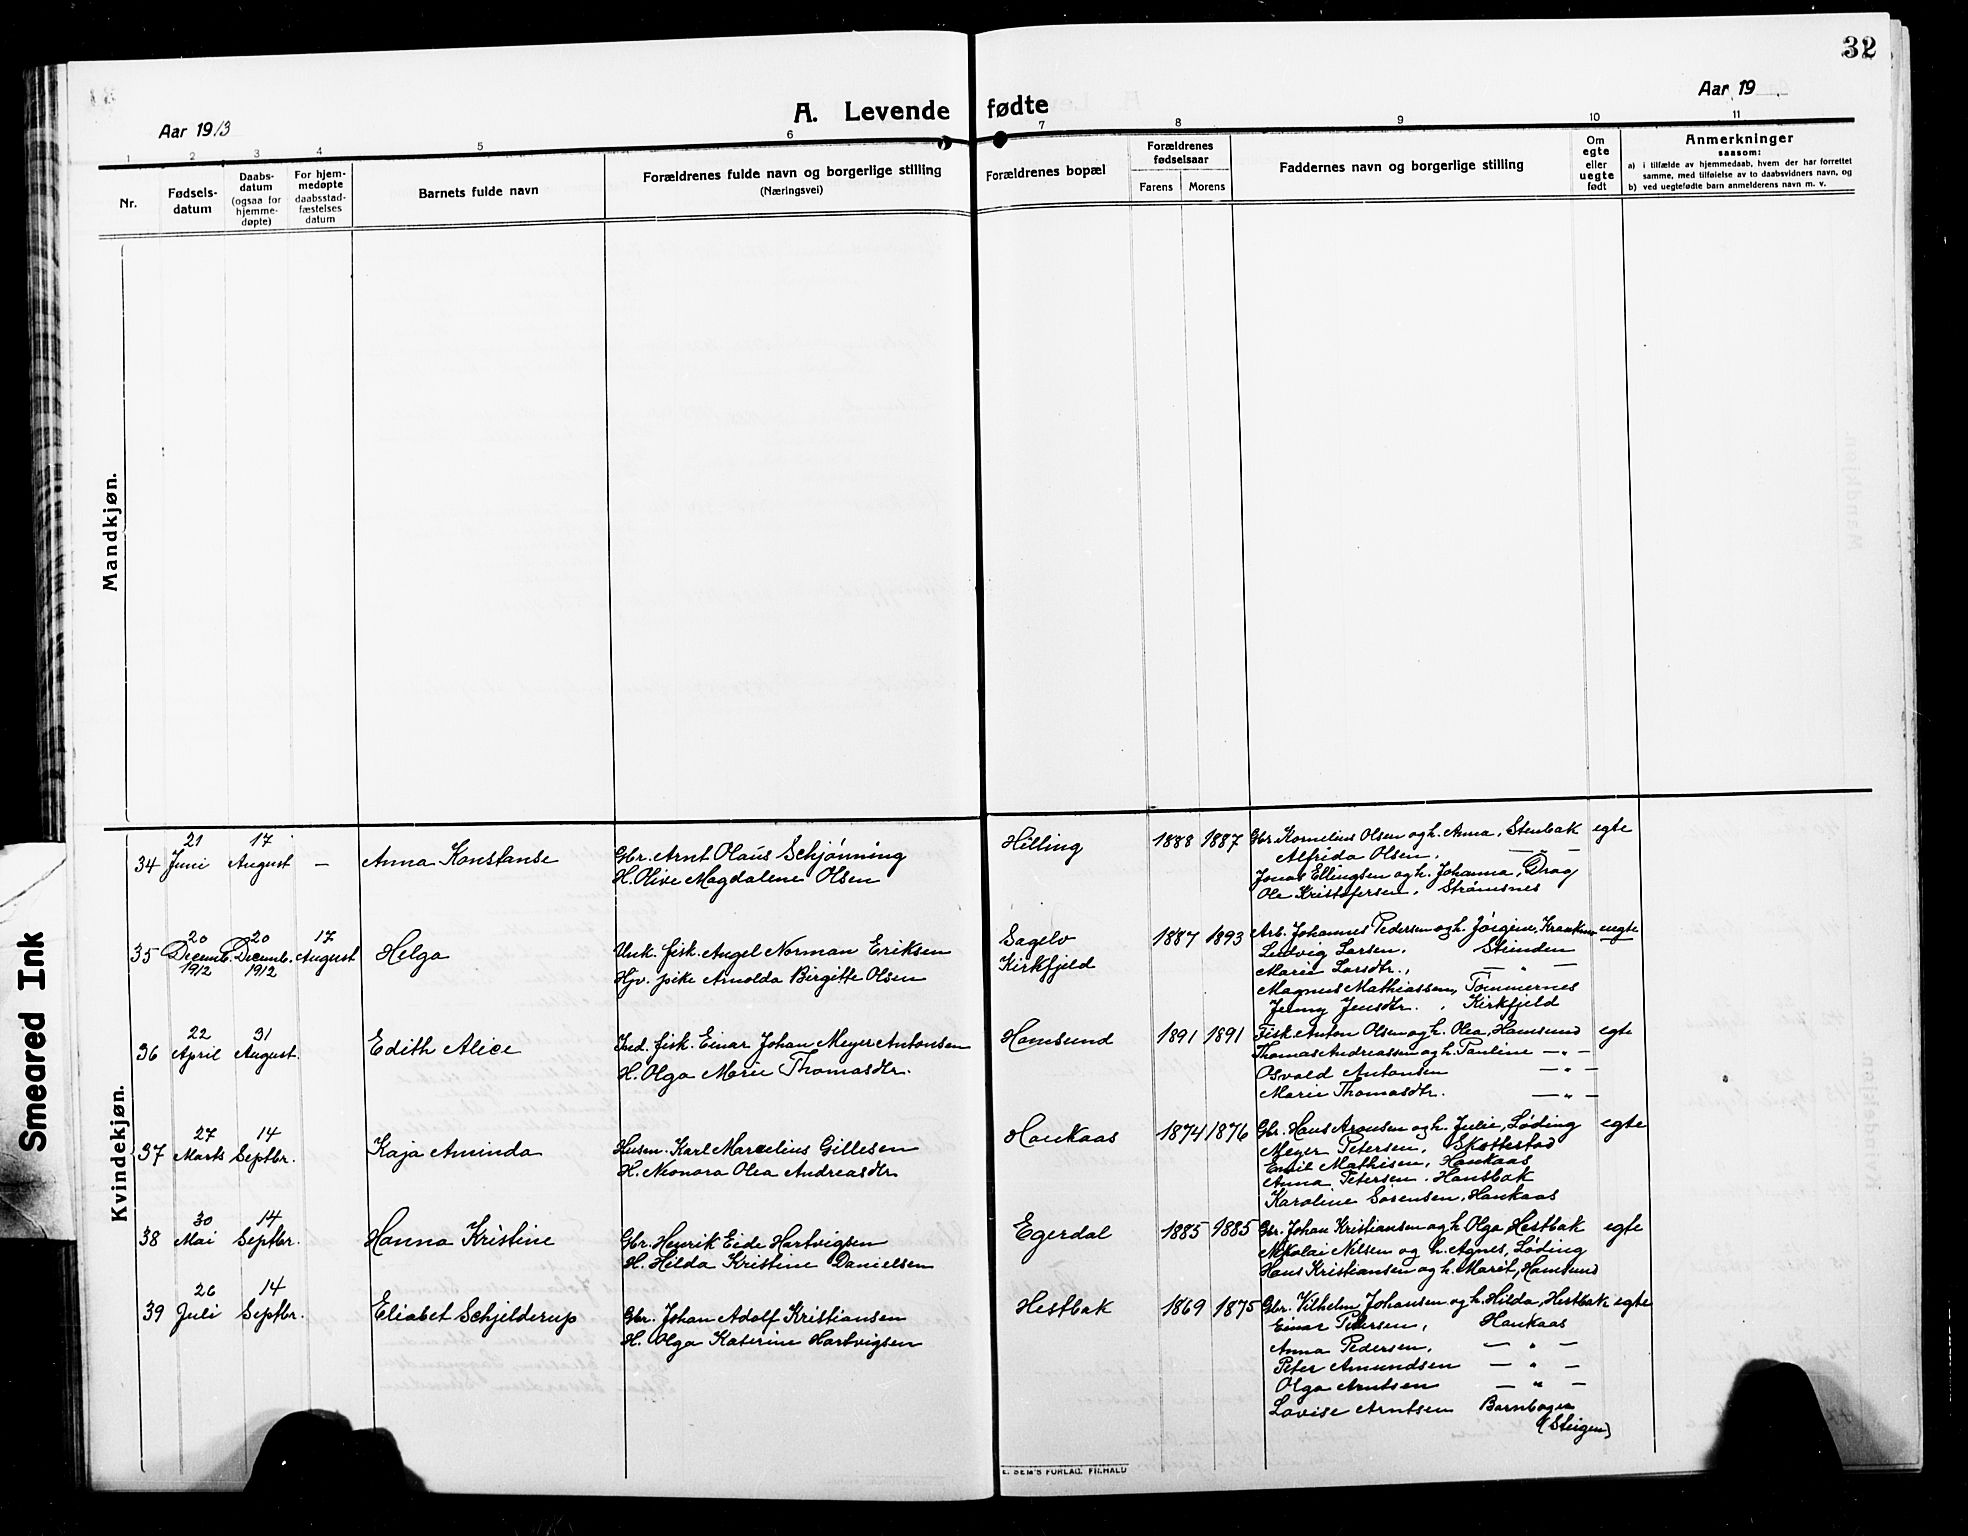 32
A. Levende fødte
Aar 1913
Aar 19
1 2 3 4 5 6 7 8 9 10 11
Nr.
Fødsels-
datum
Daabs-
datum
(ogsaa for
hjemme-
døpte)
For hjem-
medøpte
daabsstad-
fæstelses
datum
Barnets fulde navn
Forældrenes fulde navn og borgerlige stilling
(Næringsvei)
Forældrenes bopæl
Forældrenes
fødselsaar
Farens
Morens
Faddernes navn og borgerlige stilling
Om
egte
eller
uegte
født
Anmerkninger
saasom:
a) i tilfælde av hjemmedaab, hvem der har forrettet
samme, med tilføielse av to daabsvidners navn, og
b) ved uegtefødte barn anmelderens navn m. v.
Mandkjøn.
Kvindekjøn.
Smeared Ink
34 21 Juni 17 August — Anna Konstanse
Gbr. Arnt Olaus Schjønning
H. Olive Magdalene Olsen
Hilling 1888 1887
Gbr. Kornelius Olsen og h. Anna, Stenbak egte
Alfrida Olsen, — „ —
Jonas Ellingsen og h. Johanna, Drag
Ole Kristofersen, Strømsnes
35 20 Decemb. 1912 20 Decemb. 1912 17 August Helga
Unk. fisk. Angel Norman Eriksen
Hjv. pike Arnolda Birgitte Olsen
Sagelv
Kirkfjeld
1887 1893
Arb. Johannes Pedersen og h. Jørgine, uegte
Ludvig Larsen, Stinden
Marie Larsdtr., — „ —
Magnus Mathiassen, Tømmernes
Jenny Jensdtr., Kirkfjeld
36 22 April 31 August. Edith Alice
Ind. fisk. Einar Johan Meyer Antonsen
H. Olga Marie Thomasdtr.
Hamsund 1891 1891
Fisk. Anton Olsen og h. Olea, Hamsund egte
Thomas Andreassen og h. Pauline — „ —
Osvald Antonsen — „ —
Marie Thomasdtr. — „ —
37 27 Marts 14 Septbr. Kaja Aminda
Husm. Karl Marcelius Gillesen
H. Neonora Olea Andreasdtr
Haukaas 1874 1876
Gbr. Hans Aronsen og h. Julie, Løding egte
Meyer Petersen, Skottestad
Emil Mathisen, Haukaas
Anna Petersen, Hansbak
Karoline Sørensen, Haukaas
38 30 Mai 14 Septbr. Hanna Kristine
Gbr. Henrik Eide Hartvigsen
H. Hilda Kristine Danielsen
Egerdal 1885 1885
Gbr. Johan Kristiansen og h. Olga, Hestbak egte
Nikolai Nilsen og h. Agnes, Løding
Hans Kristiansen og h. Marit, Hamsund
39 26 Juli 14 Septbr. Eliabet Schjelderup
Gbr. Johan Adolf Kristiansen
H. Olga Katerine Hartvigsen
Hestbak 1869 1875
Gbr. Vilhelm Johansen og h. Hilda, Hestbak egte
Einar Petersen, Haukaas
Anna Pedersen, — „ —
Peter Amundsen — „ —
Olga Arntsen — „ —
Lovise Arntsen
(Steigen)
E. SEM'S FORLAG. FR.HALD